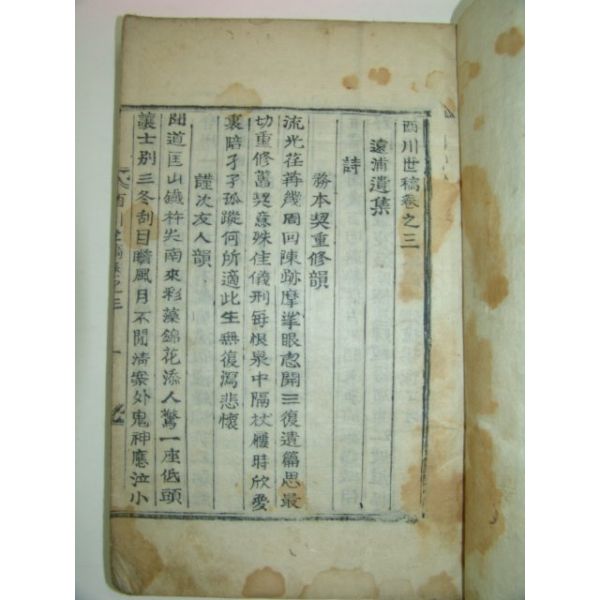 西川世稿卷之三
遠浦遺集
詩
務本契重修韻
流光荏苒歲周回陳跡摩挲眼忽開三復遺篇思最
切重修舊契意殊佳儀刑每恨泉中隔杖屨時欣愛
裏陪孑孑孤蹤何所適此生無復瀉悲懷
謹次友人韻
聞道匡山鐵杵尖南來彩藻錦花添人驚一座低頭
讓士別三冬刮目瞻風月不閒淸案外鬼神應泣小
西川世稿卷之三 一